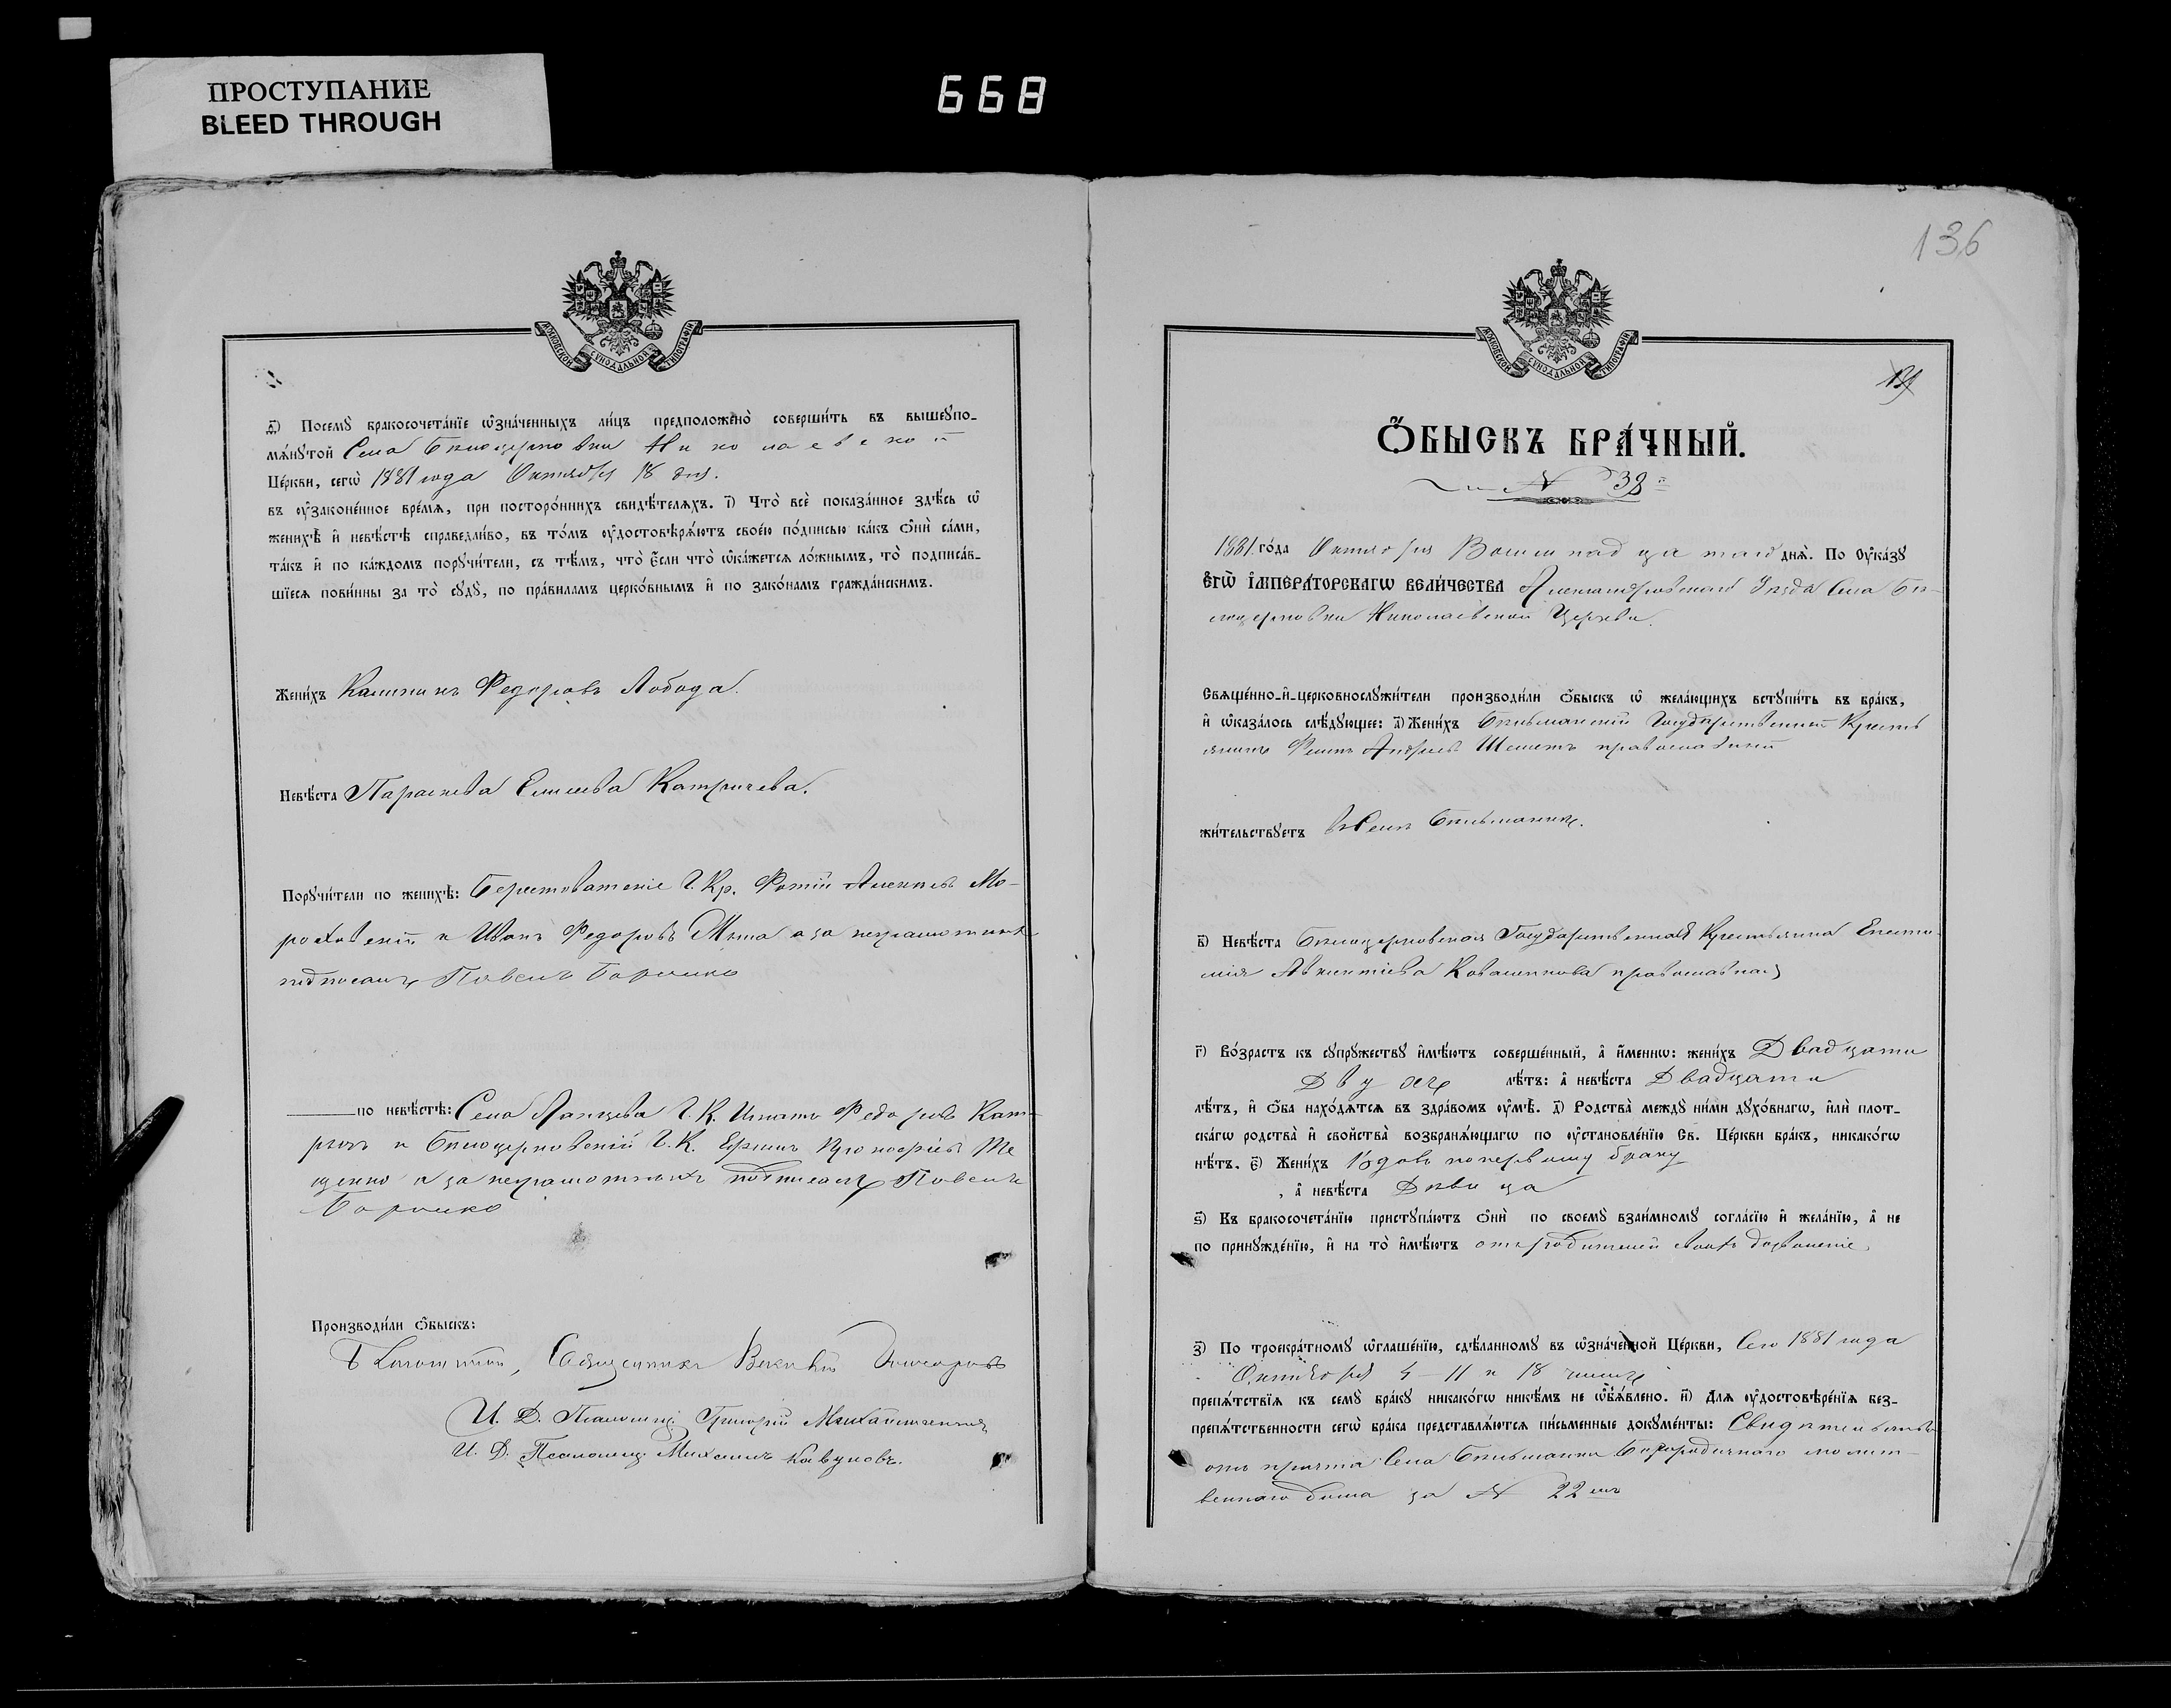 ПРОСТУПАНИЕ
BLEED THROUGH
668
МОСКОВСКОЙ СѴНОДАЛЬНОЙ ТИПОГРАФІИ
Посемꙋ̀ бракосочета́нїе ѡ҆зна́ченныхъ ли́цъ предположено̀ соверши́ть въ вышеꙋпо-
мѧ́нꙋтой Села Бѣлоцерковки Николаевской
Це́ркви, сегѡ̀ 1881 года Октября 18 дня.
въ ᲂу҆законе́нное вре́мѧ, при посторо́ннихъ свидѣ́телѧхъ. і҃) Что̀ всѐ пока́занное здѣ́сь ѡ҆
женихѣ̀ и҆ невѣ́стѣ справедли́во, въ то́мъ ᲂу҆достовѣрѧ́ютъ свое́ю по́дписью ка́къ ѻ҆нѝ са́ми,
та́къ и҆ по ка́ждомъ порꙋчи́тели, съ тѣ́мъ, что̀ є҆́сли что̀ ѡ҆ка́жетсѧ ло́жнымъ, то̀ подписа́в-
шїесѧ пови́нны за то̀ сꙋдꙋ̀, по пра́виламъ церко́внымъ и҆ по зако́намъ гражда́нскимъ.
Жени́хъ Калиникъ Федоровъ Лобода.
Невѣ́ста Параскева Елисеева Катричева.
Порꙋчи́тели по женихѣ̀: Берестоватскіе Г. Кр. Фотій Алексѣевъ Мо-
роховскій и Иванъ Федоровъ а за неграмотныхъ
подписалъ Павелъ
по невѣ́стѣ: Села Г. К. Игнатъ Федоровъ Кат-
ричъ и Бѣлоцерковскій Г. К. Ефимъ
и за неграмотныхъ подписалъ Павелъ
Производи́ли ѻ҆́быскъ:
Благочинный, Священникъ
И. Д. Псаломщ. Григорій
И. Д. Псаломщ. Михаилъ Кавуновъ.
136
МОСКОВСКОЙ СѴНОДАЛЬНОЙ ТИПОГРАФІИ
Ѻ҆́БЫСКЪ БРА́ЧНЫЙ.
N 38й
1881 го́да Октября Восемнадцатого днѧ̀. По ᲂу҆ка́зꙋ
Є҆гѡ̀ І҆мпера́торскагѡ вели́чества Александровскаго Уѣзда Села Бѣ-
лоцерковки Николаевской Церкви.
Свѧще́нно-и҆-церковнослꙋжи́тели производи́ли ѻ҆́быскъ ѡ҆ жела́ющихъ встꙋпи́ть въ бра́къ,
и҆ ѡ҆каза́лось слѣ́дꙋющее: а҃) Жени́хъ Бѣльманскій Государственный Кресть
янинъ Андреевъ Шеметъ православный
жи́тельствꙋетъ въ Селѣ Бѣльманкѣ.
в҃) Невѣ́ста Бѣлоцерковская Государственная Крестьянка Евсти-
мія Авксентіева Коваленкова православная
г҃) Во́зрастъ къ сꙋпрꙋ́жествꙋ и҆мѣ́ютъ соверше́нный, а҆ и҆́меннѡ: жени́хъ Двадцати
Двухъ лѣ́тъ: а҆ невѣ́ста Двадцати
лѣ́тъ, и҆ ѻ҆́ба нахо́дѧтсѧ въ здра́вомъ ᲂу҆мѣ̀. д҃) Родства̀ междꙋ ни́ми дꙋхо́внагѡ, и҆лѝ плот-
ска́гѡ родства̀ и҆ сво́йства̀ возбранѧ́ющагѡ по ᲂу҆становле́нїю Св. Це́ркви бра́къ, никако́гѡ
нѣ́тъ. є҃) Жени́хъ Вдовъ по первому браку
, а҆ невѣ́ста Дѣвица
ѕ҃) Къ бракосочета́нїю пристꙋпа́ютъ ѻ҆нѝ по своемꙋ̀ взаи́мномꙋ согла́сїю и҆ жела́нїю, а҆ не
по принꙋжде́нїю, и҆ на то̀ и҆мѣ́ютъ отъ родителей своихъ дозволеніе.
з҃) По троекра́тномꙋ ѡ҆глаше́нїю, сдѣ́ланномꙋ въ ѡ҆зна́ченной Це́ркви, Сего 1881 года
Октября 4 – 11 и 18 чиселъ
препѧ́тствїѧ къ семꙋ̀ бра́кꙋ никако́гѡ никѣ́мъ не ѡ҆б̾ѧ́влено. и҃) Длѧ ᲂу҆достовѣре́нїѧ без-
препѧ́тственности сегѡ̀ бра́ка представлѧ́ютсѧ пи́сьменные докꙋме́нты: Свидѣтельство
отъ причта Села Бѣльманки Богородичнаго молит-
веннаго дома за N 22мъ